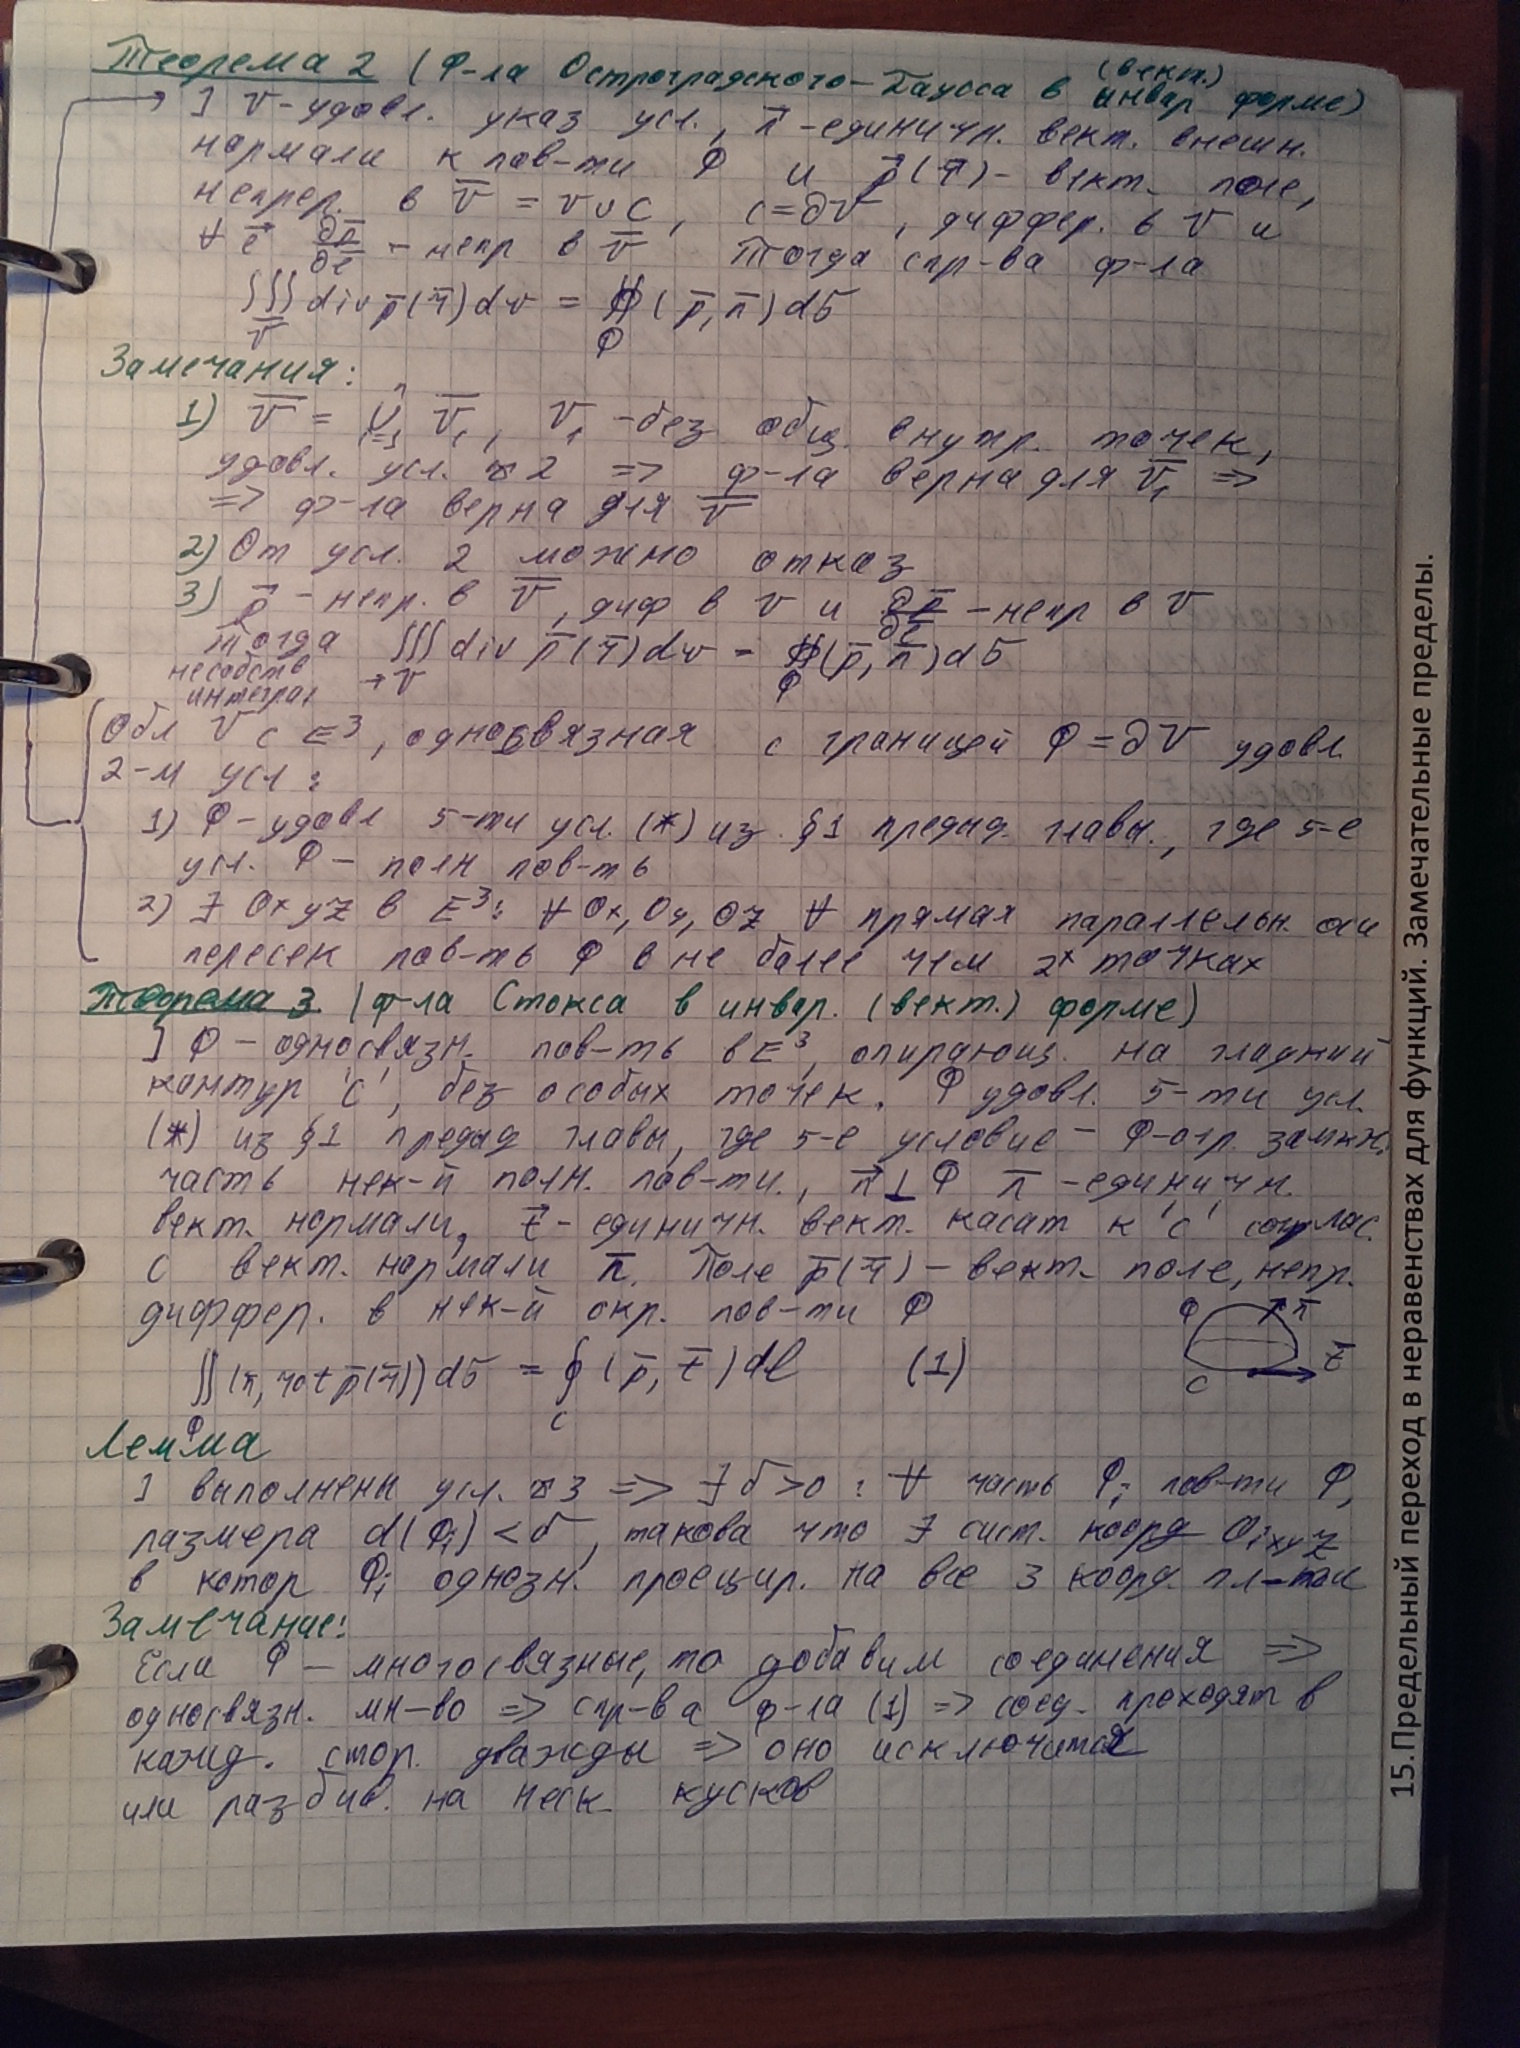 Теорема 2 (Ф-ла Остроградского-Гаусса в инвар (вект.) форме)
] V-удовл. указ усл., n⃗-единичн. вект. внешн.
нормали к пов-ти Ф и p⃗(r⃗)- вект. поле,
непрер. в V̅ = V∪C, C=∂V, диффер. в V и
∀ e⃗ ∂p̅/∂e̅ - непр в V̅ Тогда спр-ва ф-ла
∭_V̅ div p̅(r̅)dv = ∯_Ф (p̅,n̅)dσ
Замечания:
1) V̅ = ⋃ⁿᵢ₌₁ V̅ᵢ, Vᵢ -без общ. внутр. точек,
удовл. усл. т2 => ф-ла верна для V̅ᵢ =>
=> ф-ла верна для V̅
2) От усл. 2 можно отказ
3) p⃗ - непр. в V̅, диф в V и ∂p̅/∂e̅ - непр в V
тогда ∭_V div p̅(r̅)dv = ∯_Ф(p̅,n̅)dσ
несобств
интеграл →
Обл V ⊂ E³, односвязная с границей Ф=∂V удовл.
2-м усл:
1) Ф-удовл 5-ти усл. (*) из §1 предыд. главы, где 5-е
усл. Ф - полн пов-ть
2) ∃ Oxyz в E³: ∀ Ox, Oy, Oz ∀ прямая параллельн. оси
пересек пов-ть Ф в не более чем 2х точках
Теорема 3. (ф-ла Стокса в инвар. (вект.) форме)
] Ф - односвязн. пов-ть в E³, опирающ. на гладкий
контур 'C', без особых точек. Ф удовл. 5-ти усл.
(*) из §1 предыд главы, где 5-е условие - Ф-огр. замкн.
часть нек-й полн. пов-ти., n⃗⊥Ф n̅ -единичн.
вект. нормали, t⃗ - единичн. вект. касат к 'C' соглас.
с вект. нормали n̅. Поле p̅(r̅) - вект. поле, непр.
диффер. в нек-й окр. пов-ти Ф
Ф n̅
∬_Ф(n̅, rot p̅(r̅))dσ = ∮_C (p̅, t̅)dl (1)
C t̅
Лемма
] выполнены усл. т3 => ∃ δ>0 : ∀ часть Фᵢ пов-ти Ф,
размера d(Фᵢ) < δ, такова что ∃ сист. коорд Oᵢxyz
в котор Фᵢ однозн. проецир. на все 3 коорд. пл-ти
Замечание:
Если Ф - многосвязные, то добавим соединения =>
односвязн. мн-во => спр-ва ф-ла (1) => соед. проходят в
кажд. стор. дважды => оно исключится
или разбив. на неск. кусков
15.Предельный переход в неравенствах для функций. Замечательные пределы.